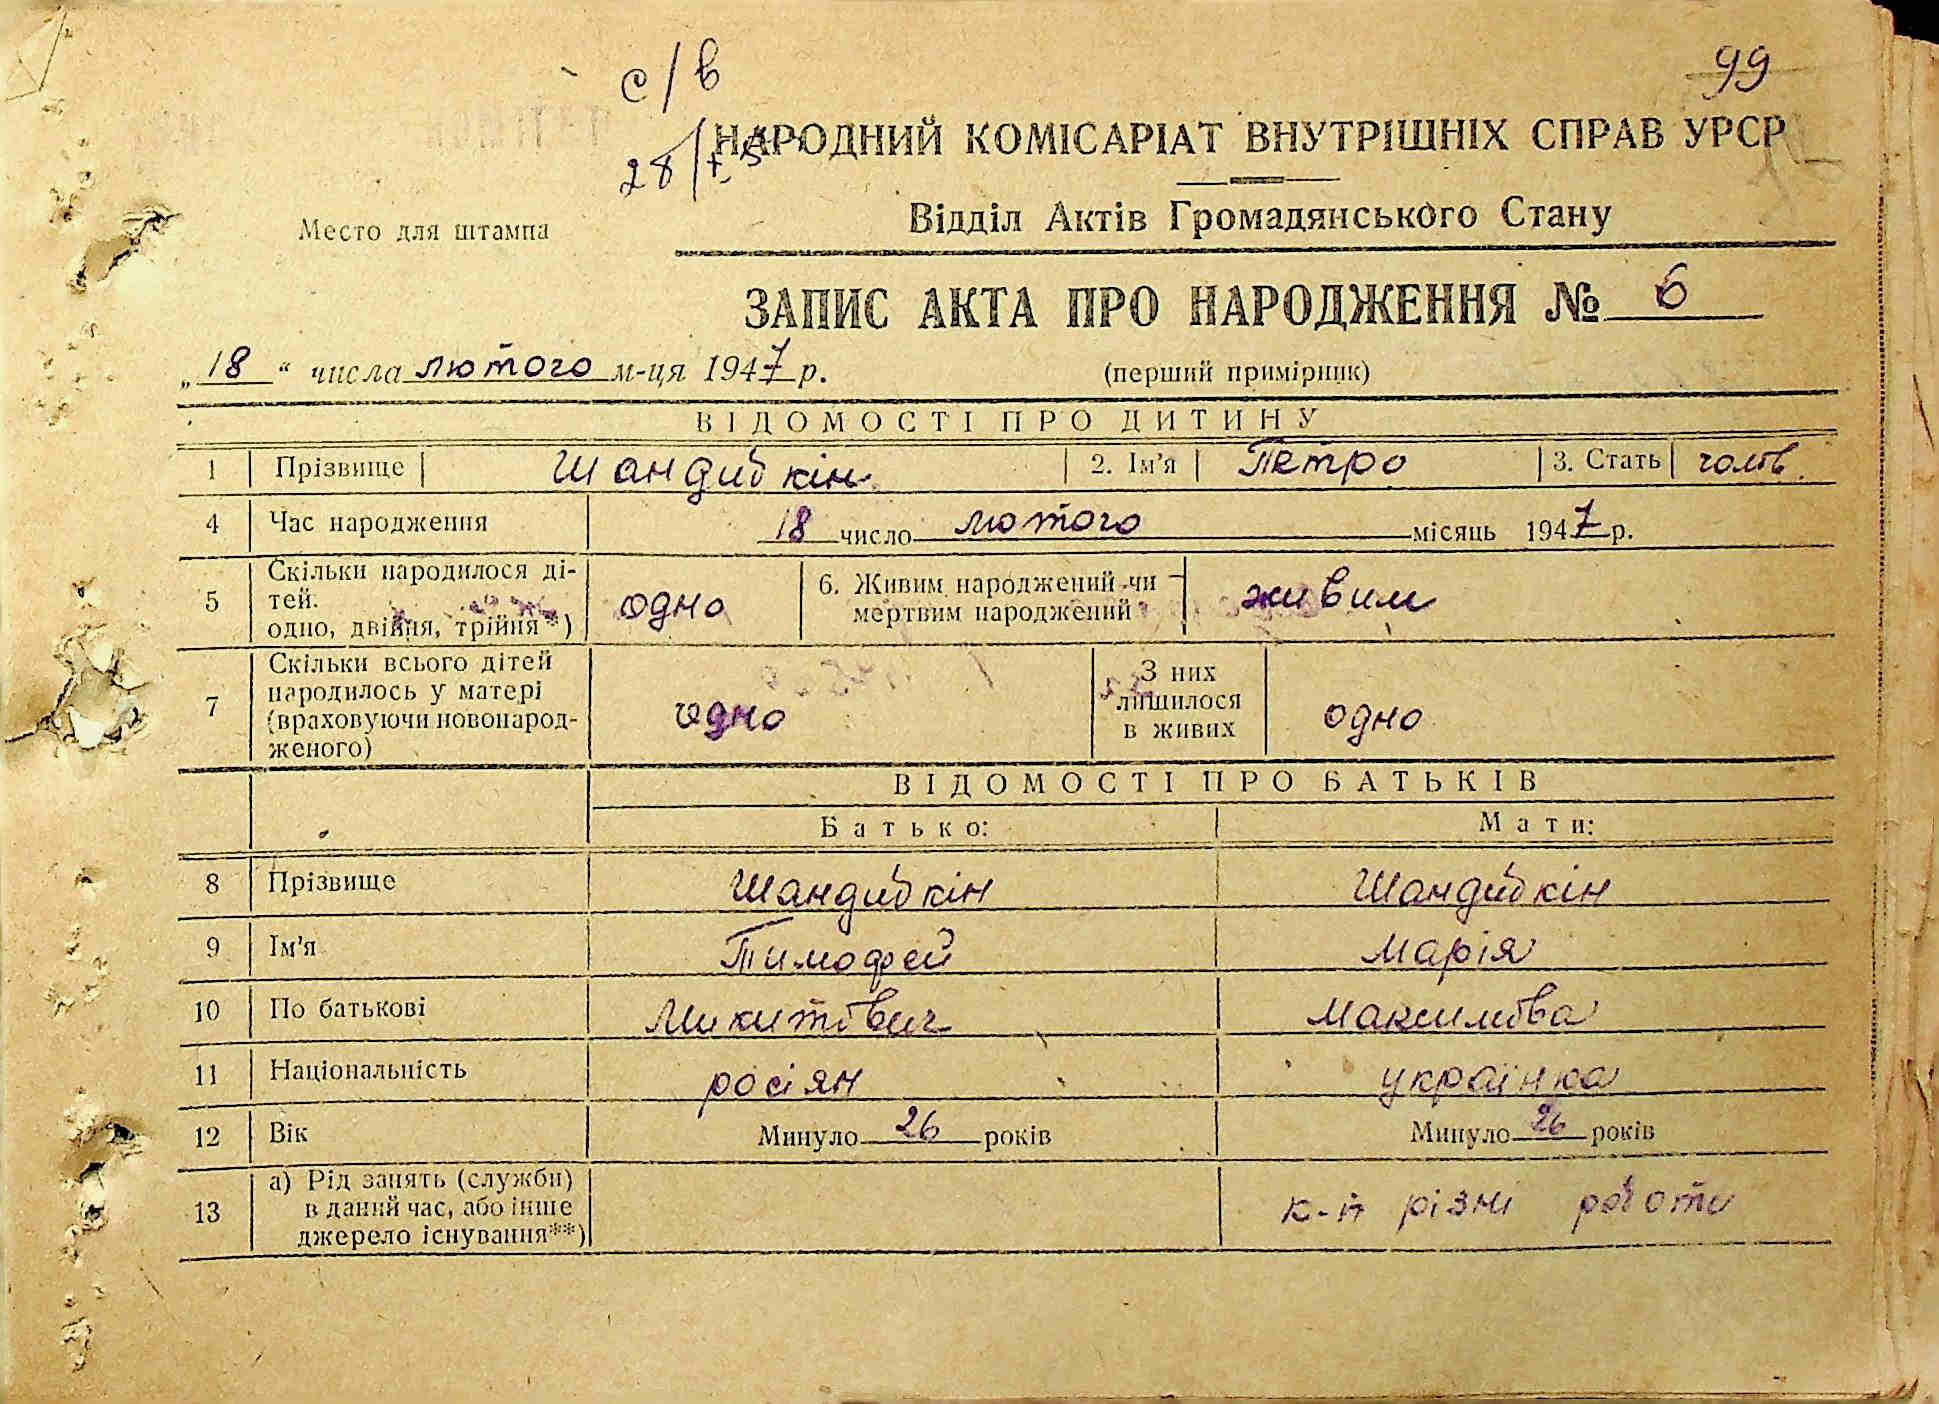 с/в
99
28/
НАРОДНИЙ КОМІСАРІАТ ВНУТРІШНІХ СПРАВ УРСР
Место для штампа
Відділ Актів Громадянського Стану
ЗАПИС АКТА ПРО НАРОДЖЕННЯ № 6
„18“ числа лютого м-ця 1947 р. (перший примірник)
ВІДОМОСТІ ПРО ДИТИНУ
1 Прізвище Шандибкін 2. Ім'я Петро 3. Стать чолов.
4 Час народження 18 число лютого місяць 1947 р.
5 Скільки народилося ді-
тей.
одно, двійня, трійня*) одно 6. Живим народжений чи
мертвим народжений живим
7 Скільки всього дітей
народилось у матері
(враховуючи новонарод-
женого) одно З них
лишилося
в живих одно
ВІДОМОСТІ ПРО БАТЬКІВ
Батько: Мати:
8 Прізвище Шандибкін Шандибкін
9 Ім'я Тимофей Марія
10 По батькові Микитович Максимовва
11 Національність росіян українка
12 Вік Минуло 26 років Минуло 26 років
13 а) Рід занять (служби)
в даний час, або інше
джерело існування**) к-п різні роботи